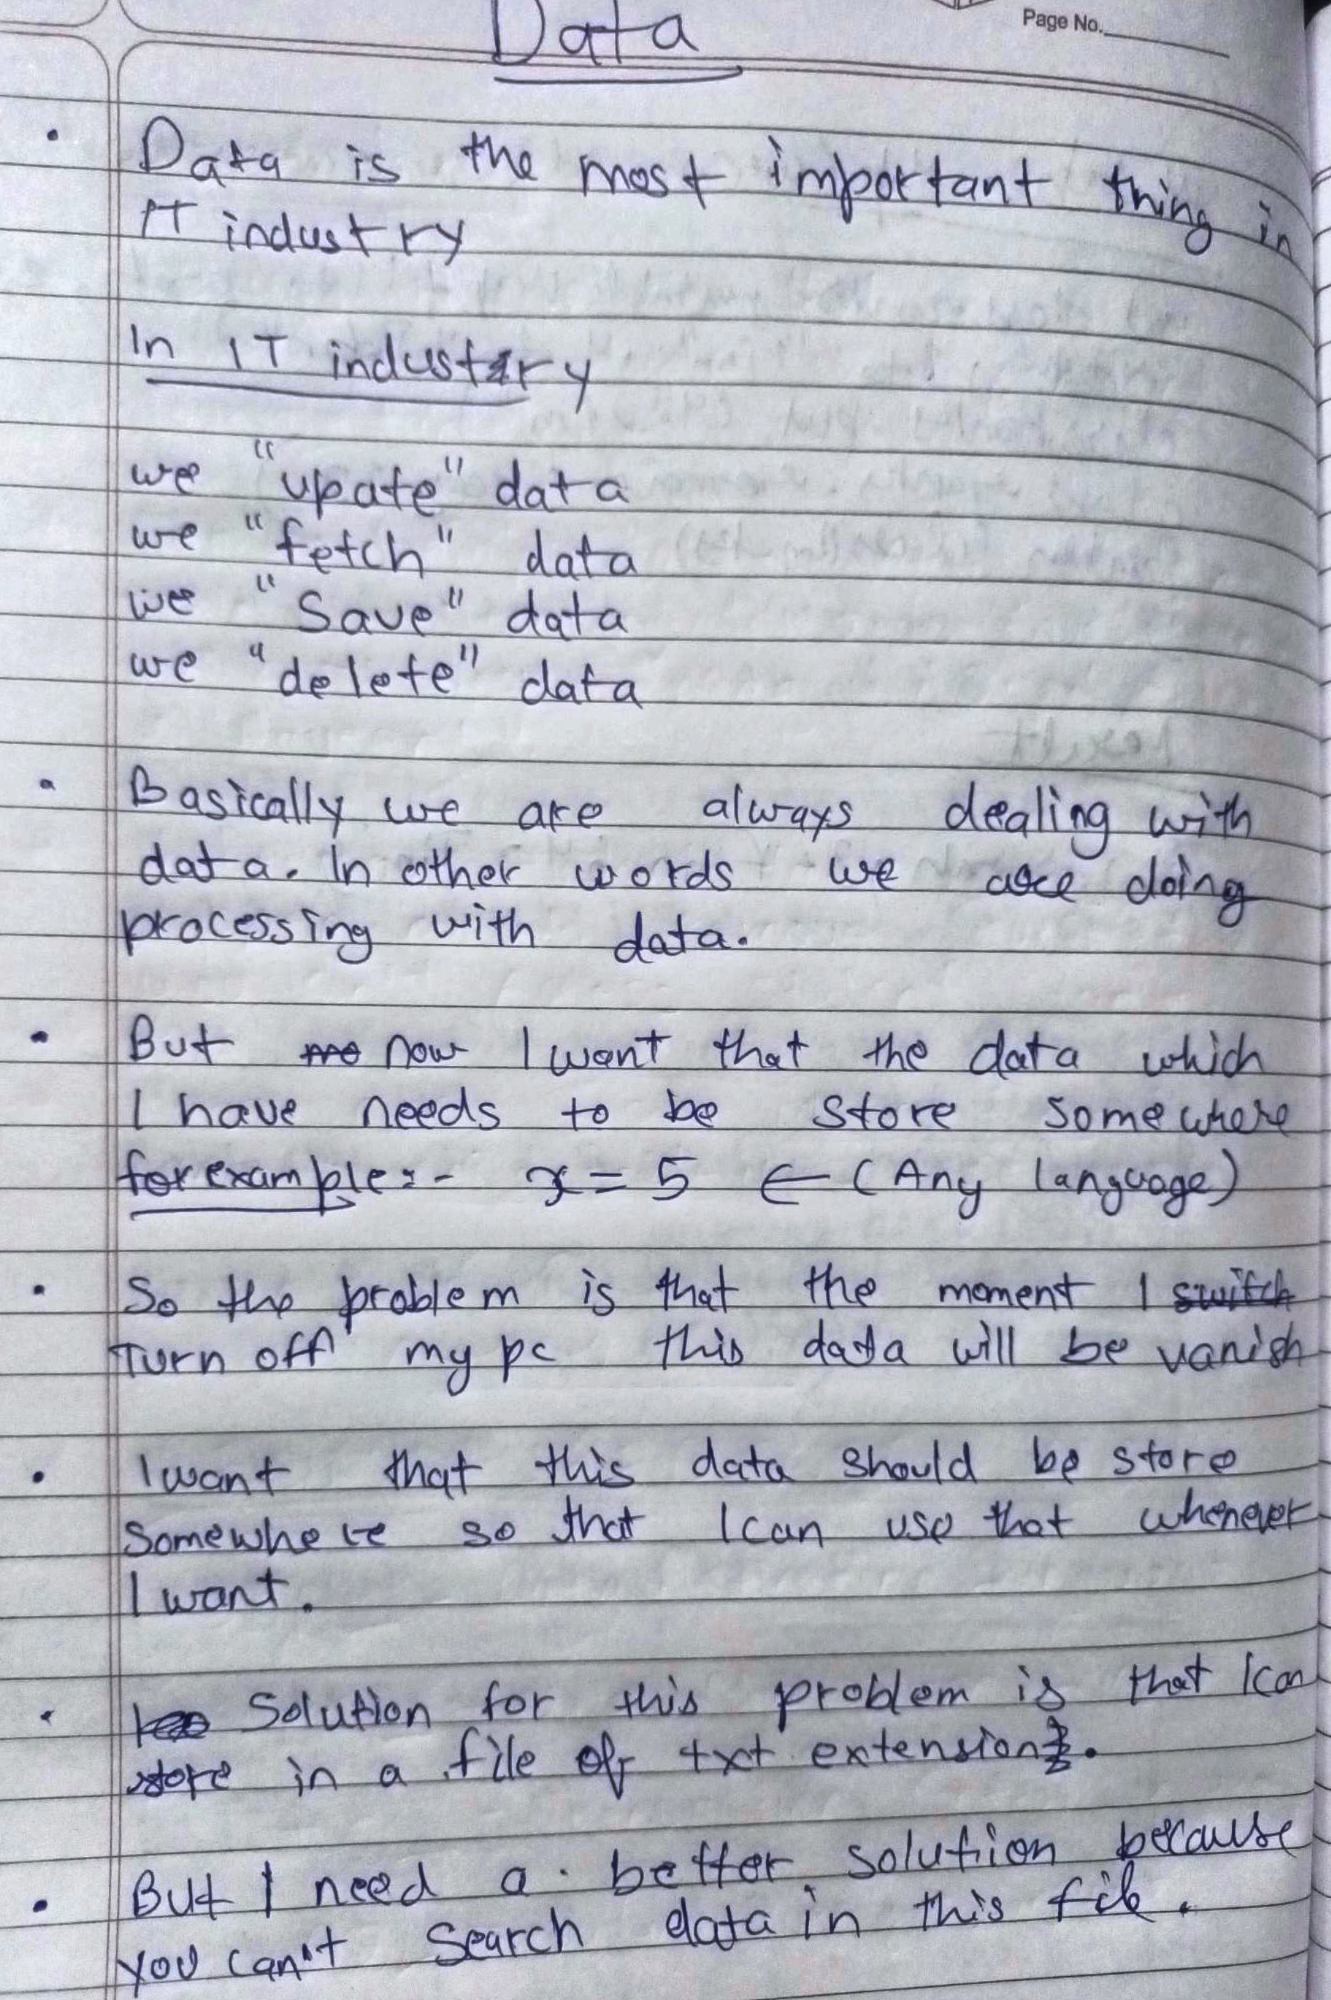 Page No.
Data
• Data is the most important thing in
IT industry
In IT industry
we "upate" data
we "fetch" data
we "Save" data
we "delete" data
• Basically we are always dealing with
data. In other words we are doing
processing with data.
• But now I want that the data which
I have needs to be store somewhere
for example:- x = 5 ← (Any language)
• So the problem is that the moment I switch
Turn off my pc this data will be vanish
• I want that this data should be store
somewhere so that I can use that whenever
I want.
• Solution for this problem is that I can
store in a file of txt extension.
• But I need a better solution because
you can't search data in this file.